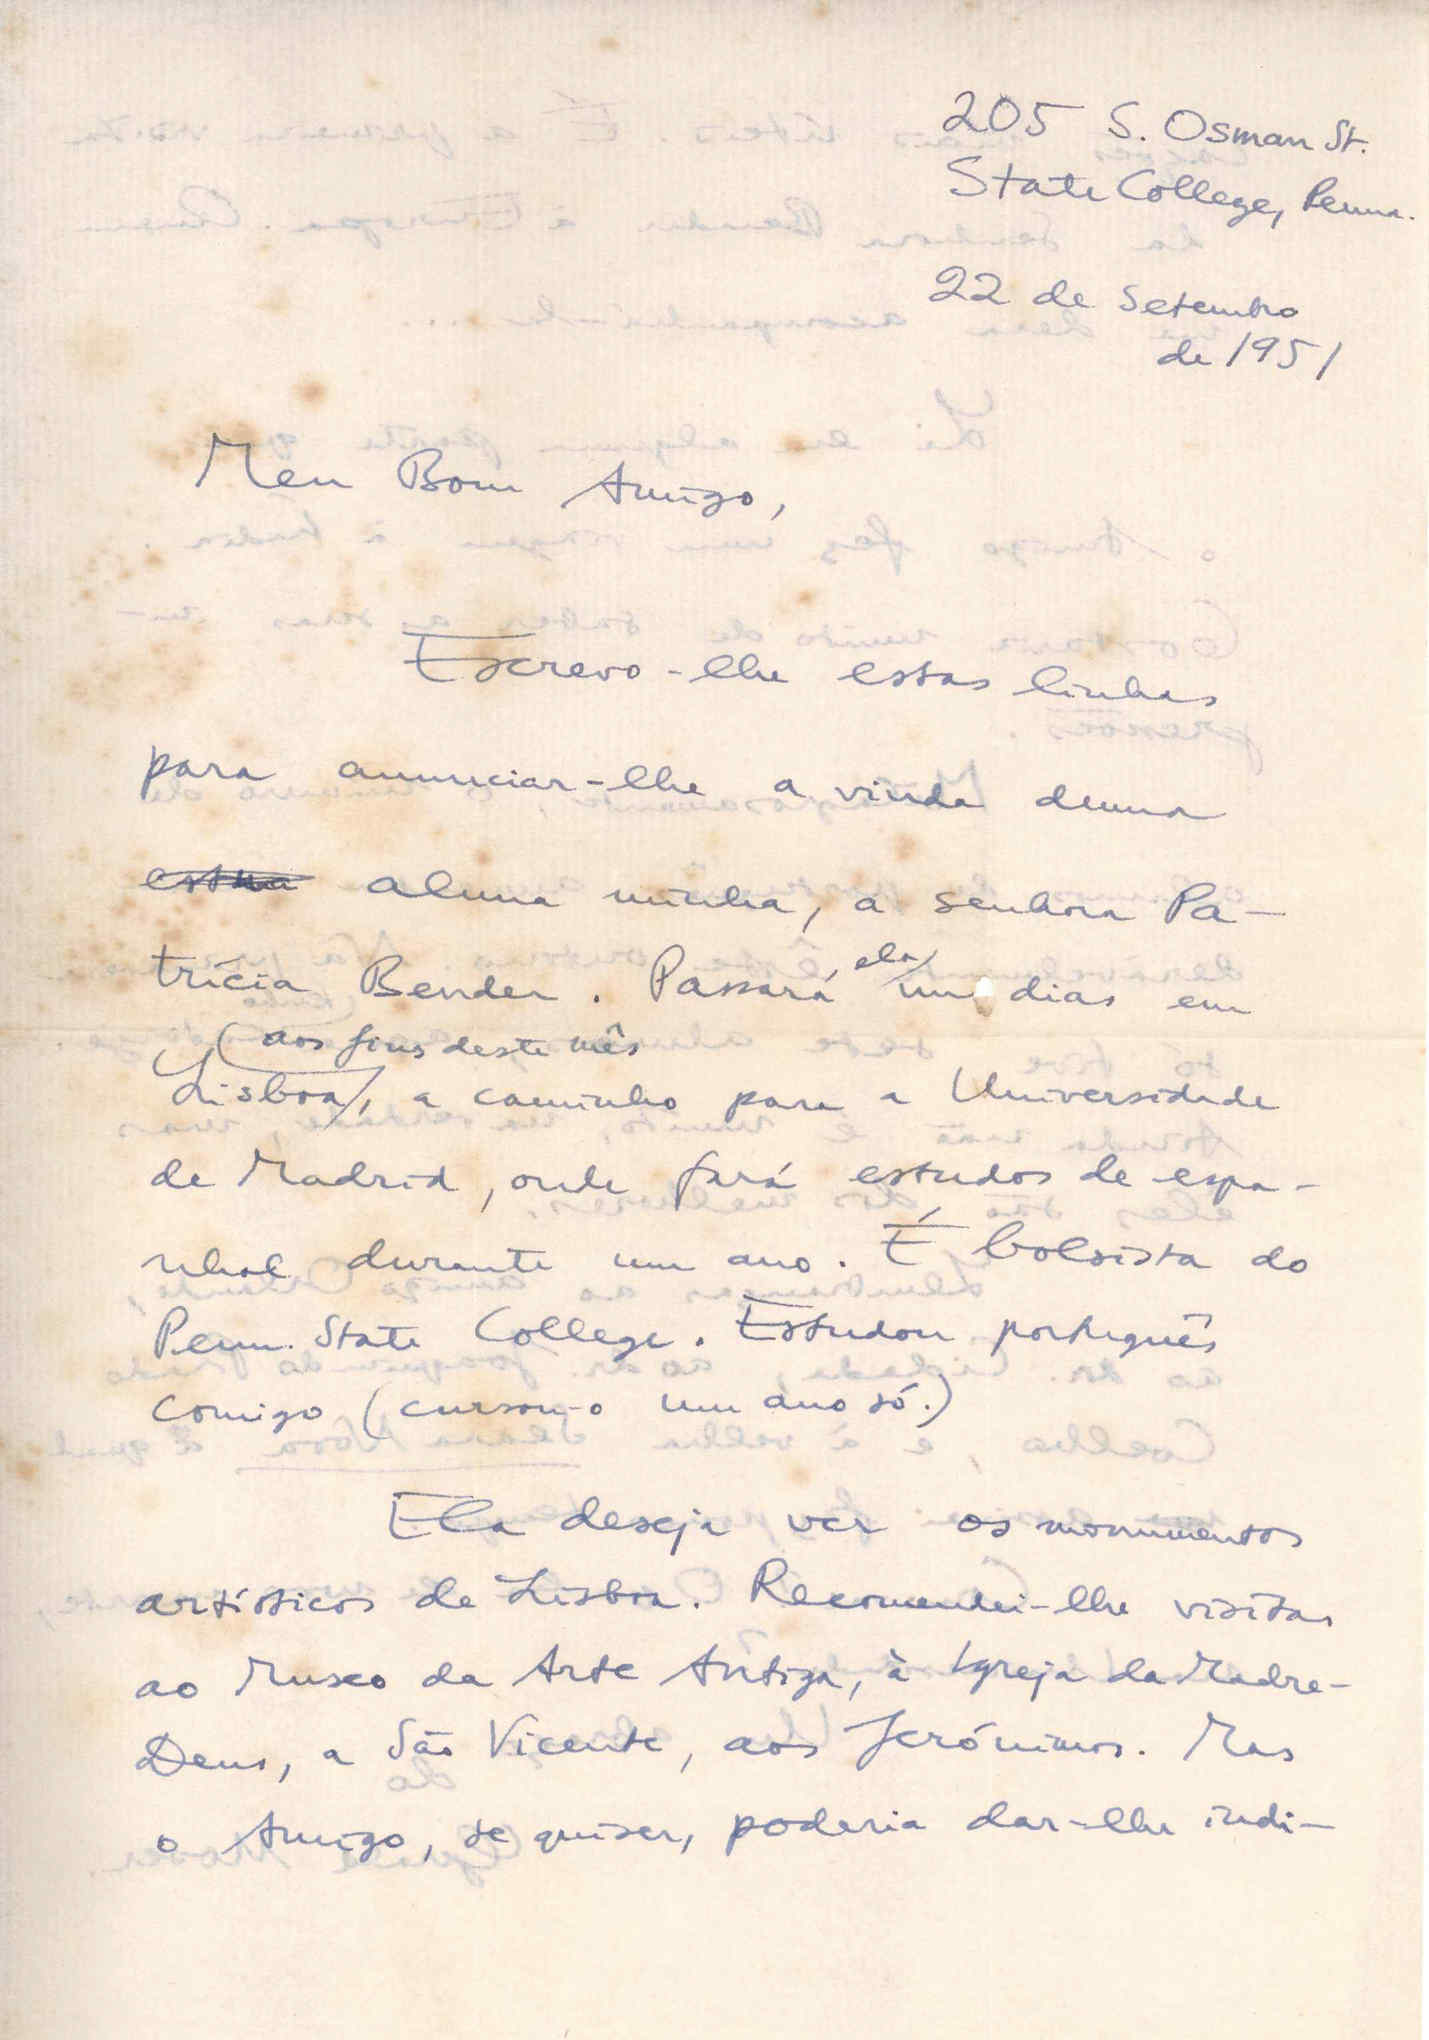 205 S. Osman St.
State College, Penna.
22 de Setembro
de 1951
Meu Bom Amigo,
Escrevo-lhe estas linhas
para anunciar-lhe a vinda duma
aluna minha, a senhora Pa-
trícia Bender. Passará ela uns dias em
aos fins deste mês
Lisboa, a caminho para a Universidade
de Madrid, onde fará estudos de espa-
nhol durante um ano. É bolsista do
Penn. State College. Estudou português
comigo (cursou-o um ano só.)
Ela deseja ver os monumentos
artísticos de Lisboa. Recomendei-lhe visitas
ao Museo da Arte Antiga, à Igreja da Madre-
Deus, a São Vicente, aos Jerónimos. Mas
o Amigo, se quiser, poderia dar-lhe indi-